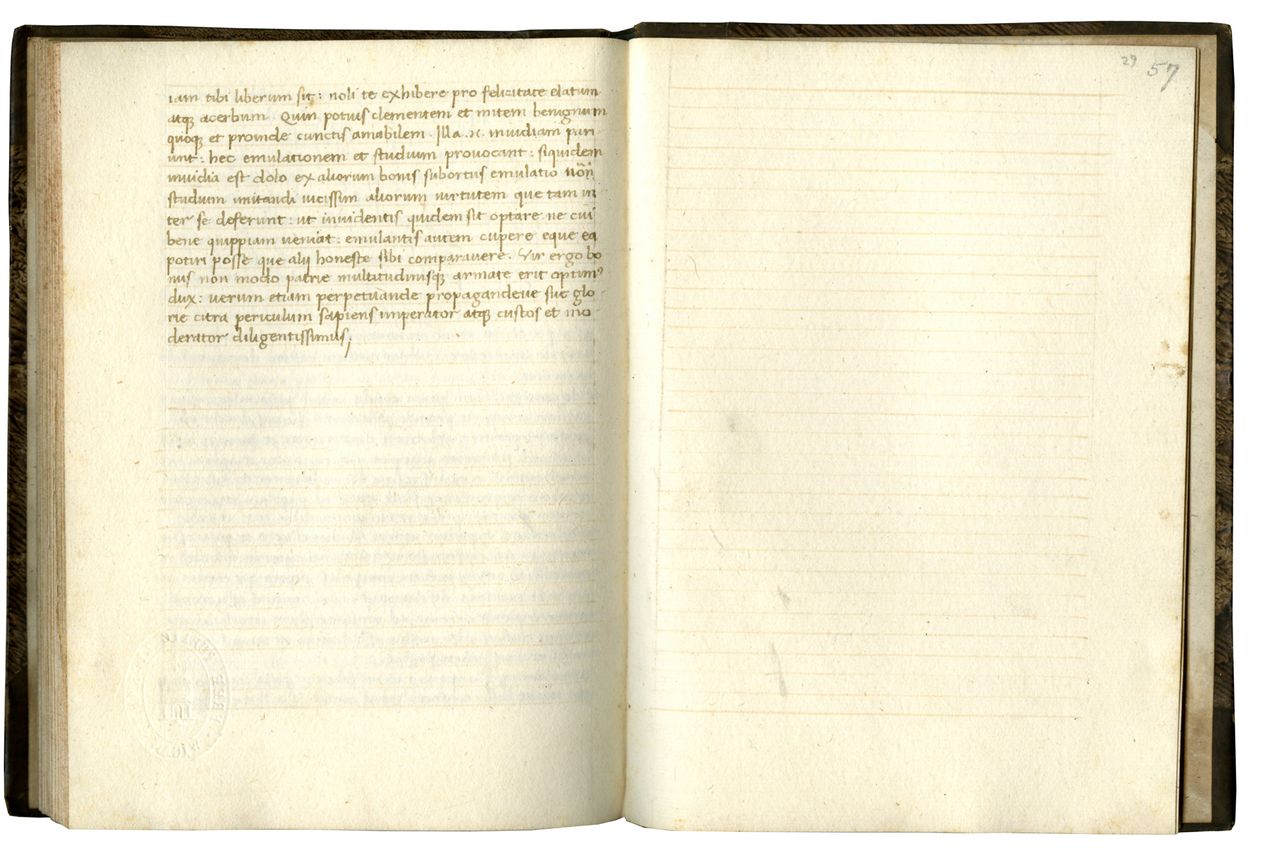 iam tibi liberum sit: noli te exhibere pro felicitate elatum
atqȝ acerbum. Quin potius clementem et mitem benignum
quoqȝ et proinde cunctis amabilem. Illa .n. inuidiam pari-
unt: hec emulationem et studium prouocant: siquidem
inuidia est dolo ex aliorum bonis subortus emulatio
studium imitandi uicissim aliorum uirtutem que tam in
ter se deferunt: ut inuidentis quidem sit optare ne cui
bene quippiam ueniat: emulantis autem cupere eque eq
potiri posse que alij honeste sibi comparauere. Vir ergo bo
nus non modo patrie multitudinisqȝ armate erit optimꝰ
dux: uerum etiam perpetuande propagandeue sue glo-
rie citra periculum sapiens imperator atqȝ custos et mo
derator diligentissimus;
29 57